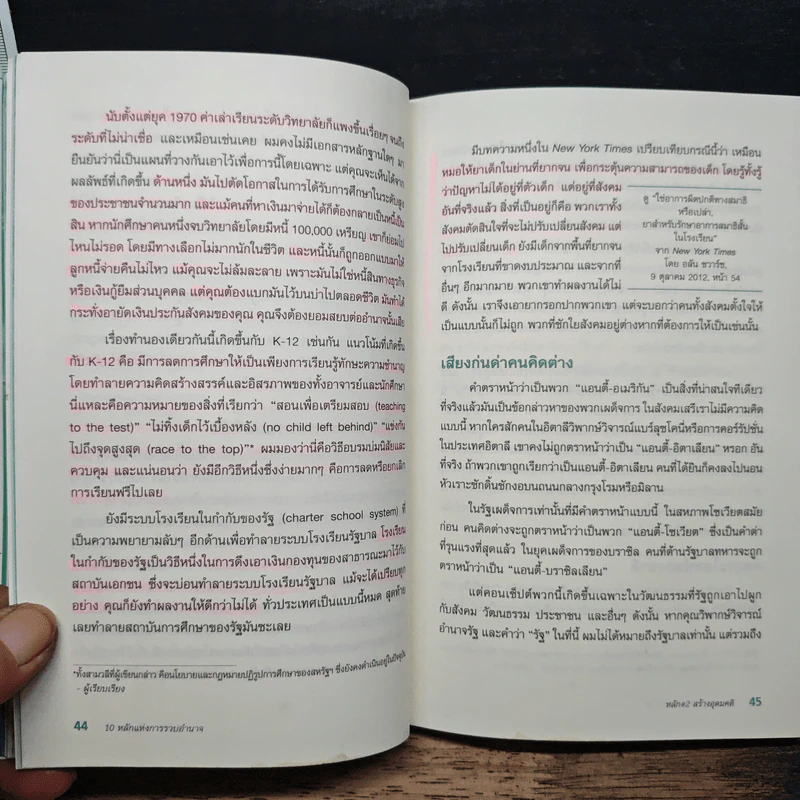 นับตั้งแต่ยุค 1970 ค่าเล่าเรียนระดับวิทยาลัยก็แพงขึ้นเรื่อยๆ จนถึง
ระดับที่ไม่น่าเชื่อ และเหมือนเช่นเคย ผมคงไม่มีเอกสารหลักฐานใดๆ มา
ยืนยันว่านี่เป็นแผนที่วางกันเอาไว้เพื่อการนี้โดยเฉพาะ แต่คุณจะเห็นได้จาก
ผลลัพธ์ที่เกิดขึ้น ด้านหนึ่ง มันไปตัดโอกาสในการได้รับการศึกษาในระดับสูง
ของประชาชนจำนวนมาก และแม้คนที่หาเงินมาจ่ายได้ก็ต้องกลายเป็นหนี้เป็น
สิน หากนักศึกษาคนหนึ่งจบวิทยาลัยโดยมีหนี้ 100,000 เหรียญ เขาก็ย่อมไป
ไหนไม่รอด โดยมีทางเลือกไม่มากนักในชีวิต และหนี้นั้นก็ถูกออกแบบมาให้
ลูกหนี้จ่ายคืนไม่ไหว แม้คุณจะไม่ล้มละลาย เพราะมันไม่ใช่หนี้สินทางธุรกิจ
หรือเงินกู้ยืมส่วนบุคคล แต่คุณต้องแบกมันไว้บนบ่าไปตลอดชีวิต มันทำได้
กระทั่งอายัดเงินประกันสังคมของคุณ คุณจึงต้องยอมสยบต่ออำนาจนั้นเสีย
เรื่องทำนองเดียวกันนี้เกิดขึ้นกับ K-12 เช่นกัน แนวโน้มที่เกิดขึ้น
กับ K-12 คือ มีการลดการศึกษาให้เป็นเพียงการเรียนรู้ทักษะความชำนาญ
โดยทำลายความคิดสร้างสรรค์และอิสรภาพของทั้งอาจารย์และนักศึกษา
นี่แหละคือความหมายของสิ่งที่เรียกว่า “สอนเพื่อเตรียมสอบ (teaching
to the test)” “ไม่ทิ้งเด็กไว้เบื้องหลัง (no child left behind)” “แข่งกัน
ไปถึงจุดสูงสุด (race to the top)”* ผมมองว่านี่คือวิธีอบรมบ่มนิสัยและ
ควบคุม และแน่นอนว่า ยังมีอีกวิธีหนึ่งซึ่งง่ายมากๆ คือการลดหรือยกเลิก
การเรียนฟรีไปเลย
ยังมีระบบโรงเรียนในกำกับของรัฐ (charter school system) ที่
เป็นความพยายามลับๆ อีกด้านเพื่อทำลายระบบโรงเรียนรัฐบาล โรงเรียน
ในกำกับของรัฐเป็นวิธีหนึ่งในการดึงเอาเงินกองทุนของสาธารณะมาไว้กับ
สถาบันเอกชน ซึ่งจะบ่อนทำลายระบบโรงเรียนรัฐบาล แม้จะได้เปรียบทุก
อย่าง คุณก็ยังทำผลงานให้ดีกว่าไม่ได้ ทั่วประเทศเป็นแบบนี้หมด สุดท้าย
เลยทำลายสถาบันการศึกษาของรัฐมันซะเลย
*ทั้งสามวลีที่ผู้เขียนกล่าว คือนโยบายและกฎหมายปฏิรูปการศึกษาของสหรัฐฯ ซึ่งยังคงดำเนินอยู่ในปัจจุบัน
- ผู้เรียบเรียง
44 10 หลักแห่งการรวบอำนาจ
มีบทความหนึ่งใน New York Times เปรียบเทียบกรณีนี้ว่า เหมือน
หมอให้ยาเด็กในย่านที่ยากจน เพื่อกระตุ้นความสามารถของเด็ก โดยรู้ทั้งรู้
ว่าปัญหาไม่ได้อยู่ที่ตัวเด็ก แต่อยู่ที่สังคม
อันที่จริงแล้ว สิ่งที่เป็นอยู่ก็คือ พวกเราทั้ง
สังคมตัดสินใจที่จะไม่ปรับเปลี่ยนสังคม แต่
ไปปรับเปลี่ยนเด็ก ยังมีเด็กจากพื้นที่ยากจน
จากโรงเรียนที่ขาดงบประมาณ และจากที่
อื่นๆ อีกมากมาย พวกเขาทำผลงานได้ไม่
ดี ดังนั้น เราจึงเอายากรอกปากพวกเขา แต่จะบอกว่าคนทั้งสังคมตั้งใจให้
เป็นแบบนั้นก็ไม่ถูก พวกที่ชักใยสังคมอยู่ต่างหากที่ต้องการให้เป็นเช่นนั้น
ดู “ใช่อาการผิดปกติทางสมาธิ
หรือเปล่า,
ยาสำหรับรักษาอาการสมาธิสั้น
ในโรงเรียน”
จาก New York Times
โดย อลัน ชวาร์ช,
9 ตุลาคม 2012, หน้า 54
เสียงก่นด่าคนคิดต่าง
คำตราหน้าว่าเป็นพวก “แอนตี้-อเมริกัน” เป็นสิ่งที่น่าสนใจทีเดียว
ที่จริงแล้วมันเป็นข้อกล่าวหาของพวกเผด็จการ ในสังคมเสรีเราไม่มีความคิด
แบบนี้ หากใครสักคนในอิตาลีวิพากษ์วิจารณ์แบร์ลุซโคนี่หรือการคอร์รัปชั่น
ในประเทศอิตาลี เขาคงไม่ถูกตราหน้าว่าเป็น “แอนตี้-อิตาเลียน” หรอก อัน
ที่จริง ถ้าพวกเขาถูกเรียกว่าเป็นแอนตี้-อิตาเลียน คนที่ได้ยินก็คงลงไปนอน
หัวเราะชักดิ้นชักงอบนถนนกลางกรุงโรมหรือมิลาน
ในรัฐเผด็จการเท่านั้นที่มีคำตราหน้าแบบนี้ ในสหภาพโซเวียตสมัย
ก่อน คนคิดต่างจะถูกตราหน้าว่าเป็นพวก “แอนตี้-โซเวียต” ซึ่งเป็นคำด่า
ที่รุนแรงที่สุดแล้ว ในยุคเผด็จการของบราซิล คนที่ต้านรัฐบาลทหารจะถูก
ตราหน้าว่าเป็น “แอนตี้-บราซิลเลียน”
แต่คอนเซ็ปต์พวกนี้เกิดขึ้นเฉพาะในวัฒนธรรมที่รัฐถูกเอาไปผูก
กับสังคม วัฒนธรรม ประชาชน และอื่นๆ ดังนั้น หากคุณวิพากษ์วิจารณ์
อำนาจรัฐ และคำว่า “รัฐ” ในที่นี้ ผมไม่ได้หมายถึงรัฐบาลเท่านั้น แต่รวมถึง
หลัก๑2 สร้างอุดมคติ 45